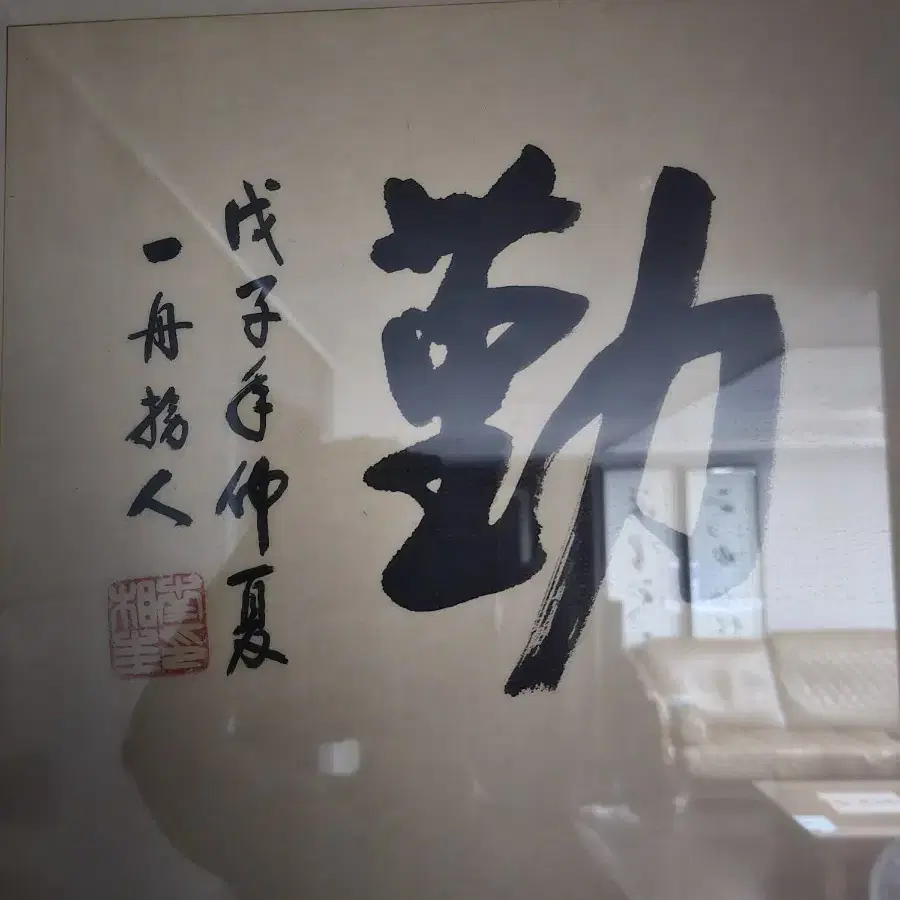 勤
戊子年仲夏
一舟 人